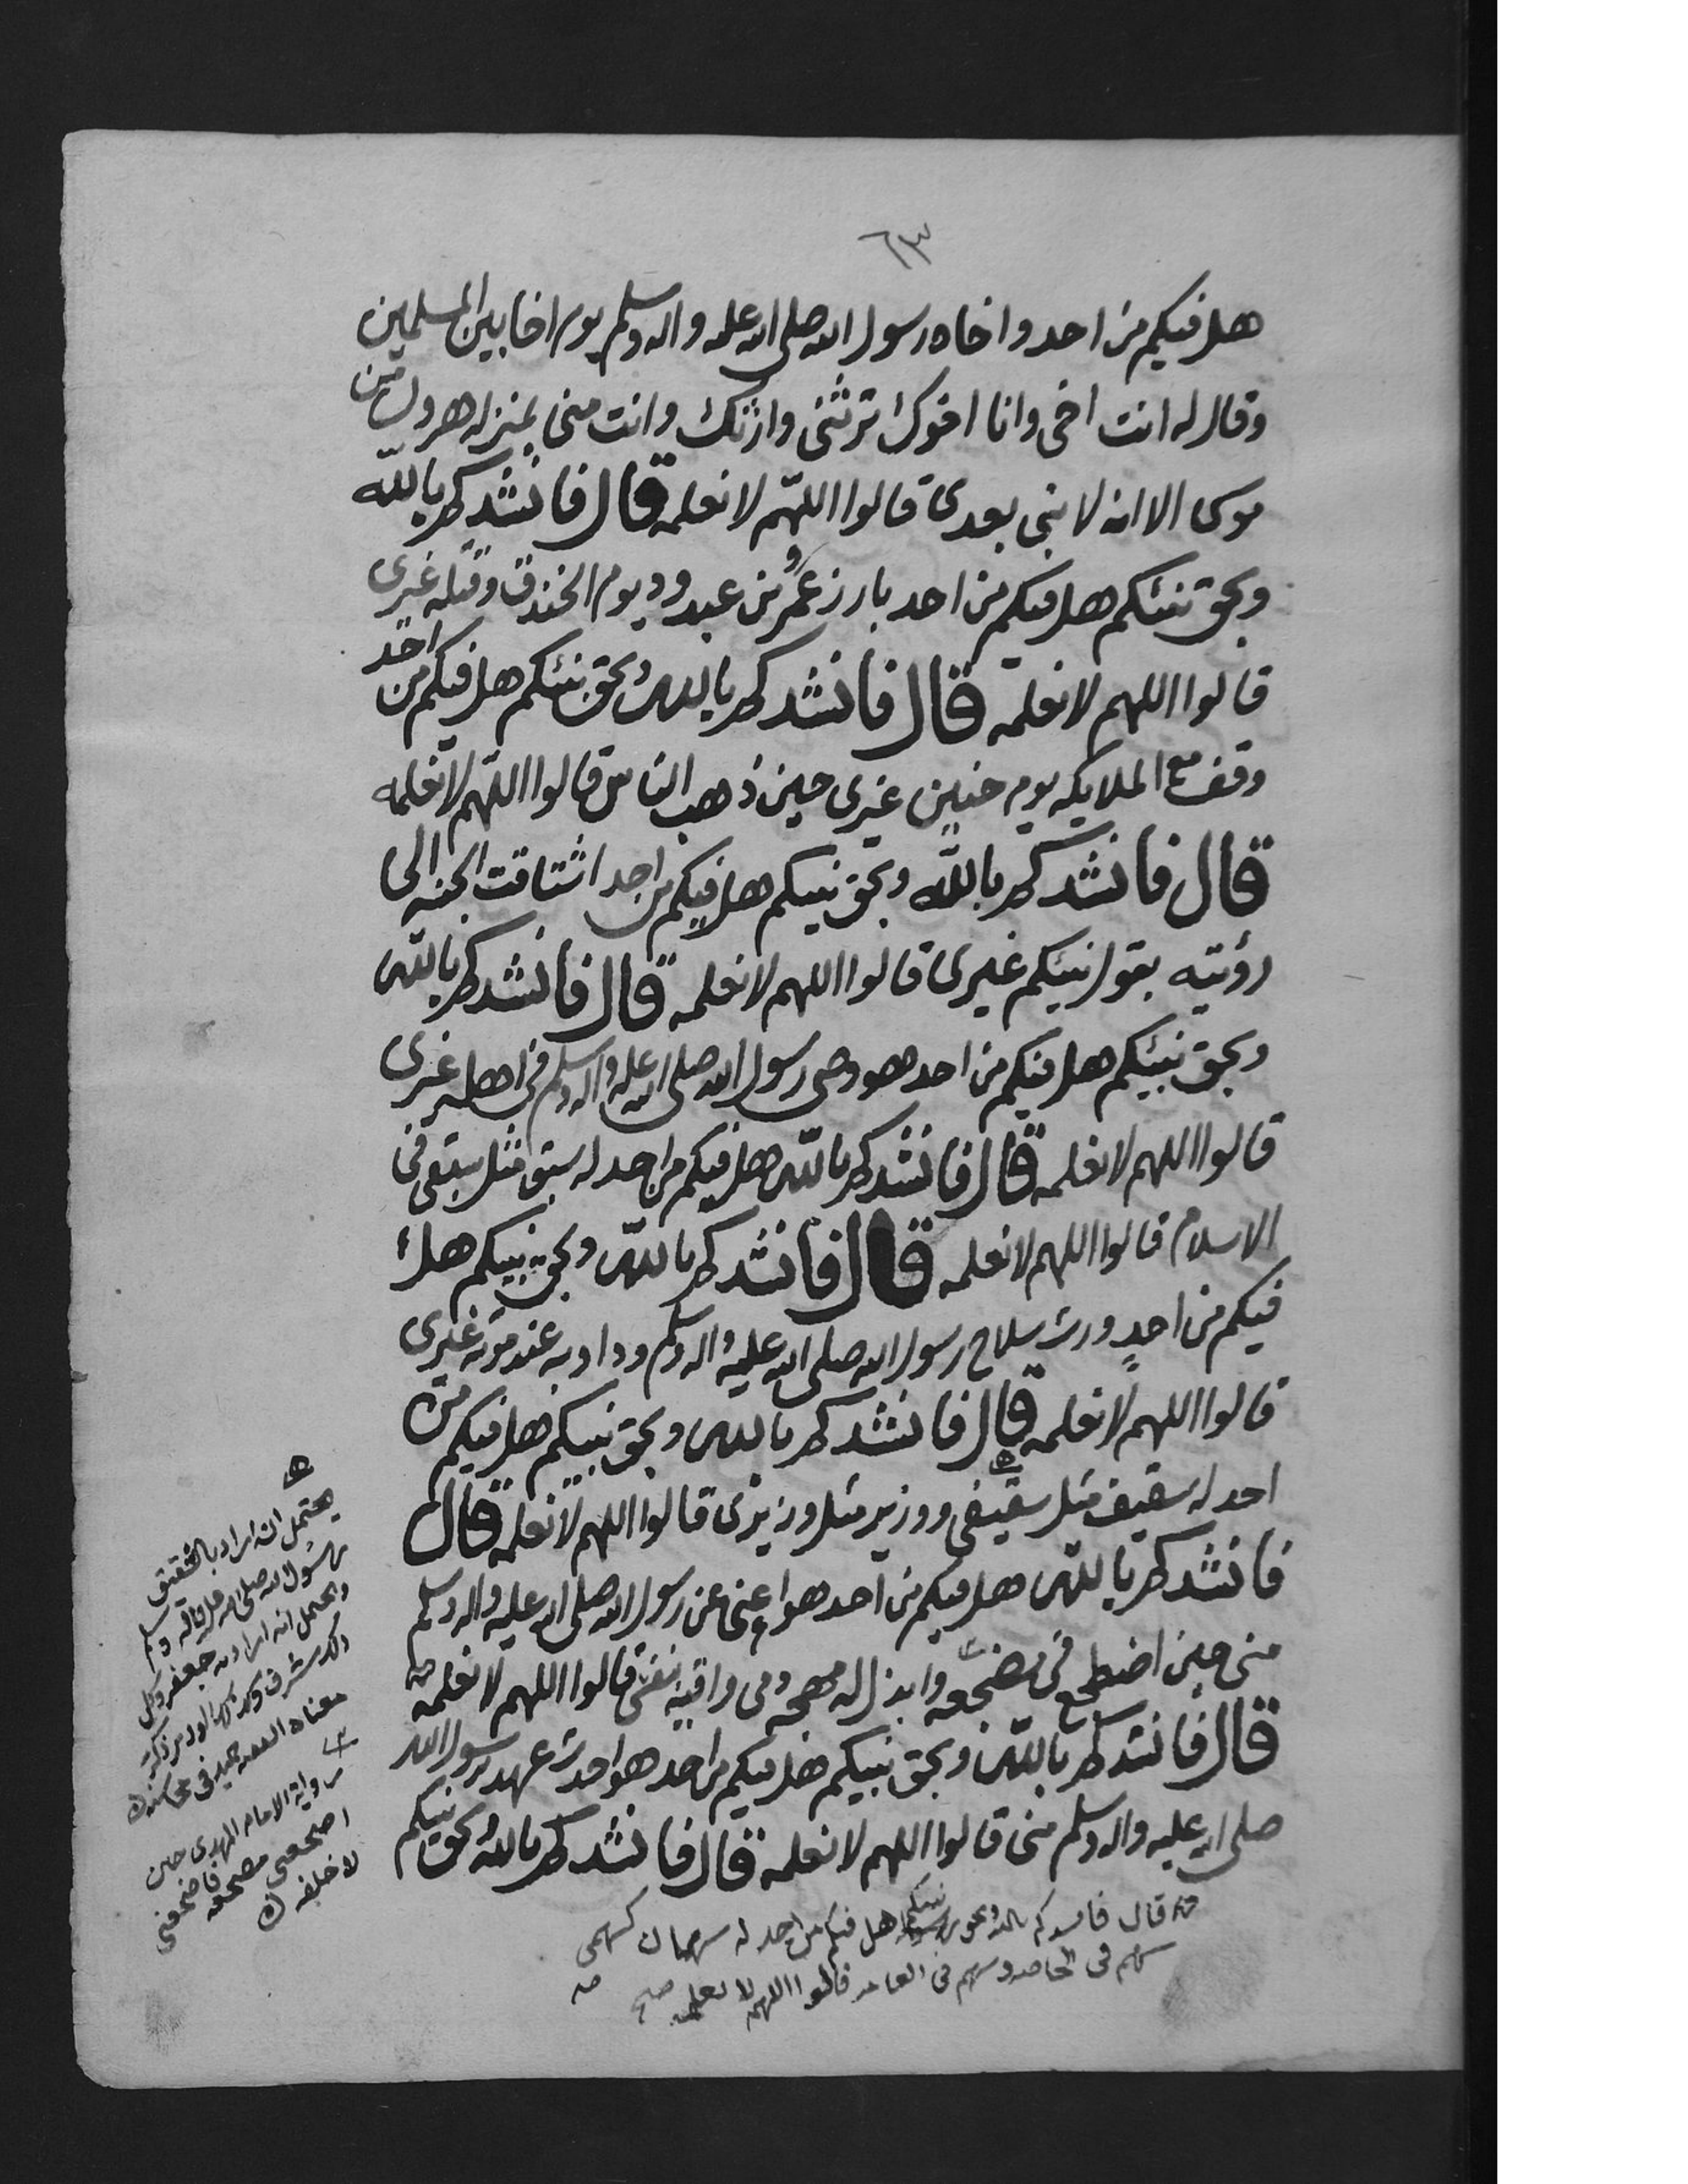 ٦٣
هل فيكم من احد واخاه رسول الله صلى الله عليه واله وسلم يوم اخا بين المسلمين
وقال له انت اخى وانا اخوك ترثنى وارثك وانت منى بمنزله هرون من
موسى الا انه لا نبى بعدى قالوا اللهم لا نعلمه قال فانشدكم بالله
وبحق نبئكم هل فيكم من احد بارز عمرو بن عبد ود يوم الخندق وقتله غيرى
قالوا اللهم لا نعلمه قال فانشدكم بالله وبحق نبئكم هل فيكم من احد
وقف مع الملايكه يوم حنين غيرى حين ذهب الناس قالوا اللهم لا نعلمه
قال فانشدكم بالله وبحق نبيكم هل فيكم من احد اشتاقت الجنه الى
رؤيته بقول نبئكم غيرى قالوا اللهم لا نعلمه قال فانشدكم بالله
وبحق نبئكم هل فيكم من احد هو وصى رسول الله صلى الله عليه واله وسلم فى اهله غيرى
قالوا اللهم لا نعلمه قال فانشدكم بالله هل فيكم من احد له سبق مثل سبقى فى
الاسلام قالوا اللهم لا نعلمه قال فانشدكم بالله وبحق نبيكم هل
فيكم من احد ورث سلاح رسول الله صلى الله عليه واله وسلم ودوابه عند موته غيرى
قالوا اللهم لا نعلمه قال فانشدكم بالله وبحق نبيكم هل فيكم من
احد له شقيق مثل شقيقى ووزير مثل وزيرى قالوا اللهم لا نعلمه قال
فانشدكم بالله هل فيكم من احد هو اغنى عن رسول الله صلى الله عليه واله وسلم
منى حين اضطجع فى مضجعه وابذل له مهجة دمى واقيه بنفسى قالوا اللهم لا نعلمه
قال فانشدكم بالله وبحق نبيكم هل فيكم من احد هو احدث عهد برسول الله
صلى الله عليه واله وسلم منى قالوا اللهم لا نعلمه قال فانشدكم بالله وبحق نبيكم
قال فانشدكم بالله وبحق نبيكم هل فيكم من احد له سهمان كسهمى
سهم فى الخاصه وسهم فى العامه قالوا اللهم لا نعلمه صح
يحتمل انه اراد بالشقيق
رسول الله صلى الله عليه واله وسلم
ويحتمل انه اراد به جعفر وكل
ذلك شرف
رواية الامام المهدى حين
اضجعنى مضجعه فاضجعنى
لا خلفه